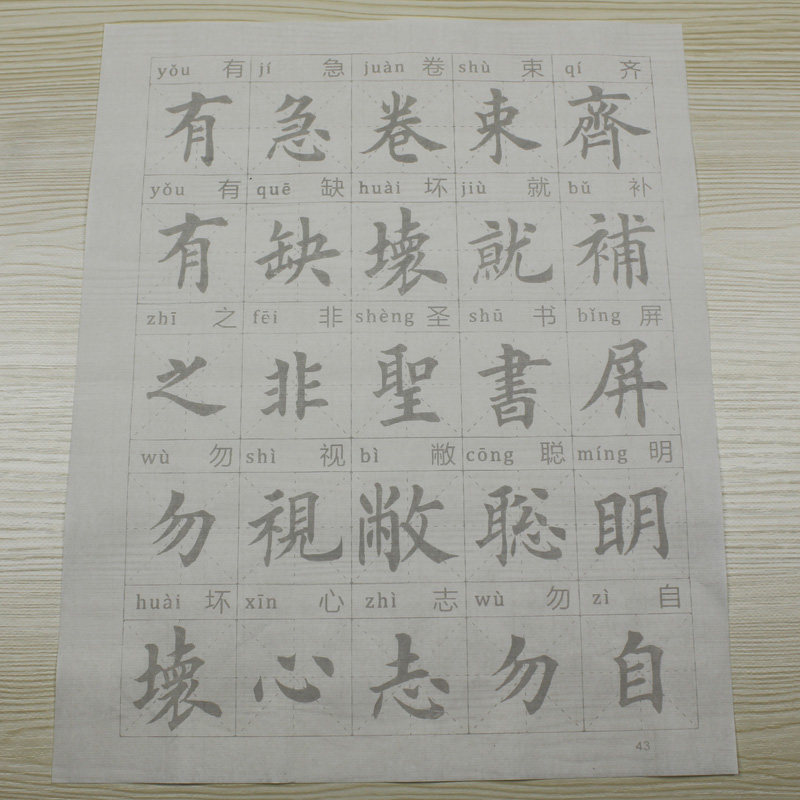 yǒu 有 jí 急 juàn 卷 shù 束 qí 齐
有 急 卷 束 齊
yǒu 有 quē 缺 huài 坏 jiù 就 bǔ 补
有 缺 壞 就 補
zhī 之 fēi 非 shèng 圣 shū 书 bǐng 屏
之 非 聖 書 屏
wù 勿 shì 视 bì 敝 cōng 聪 míng 明
勿 視 敝 聡 明
huài 坏 xīn 心 zhì 志 wù 勿 zì 自
壞 心 志 勿 自
43